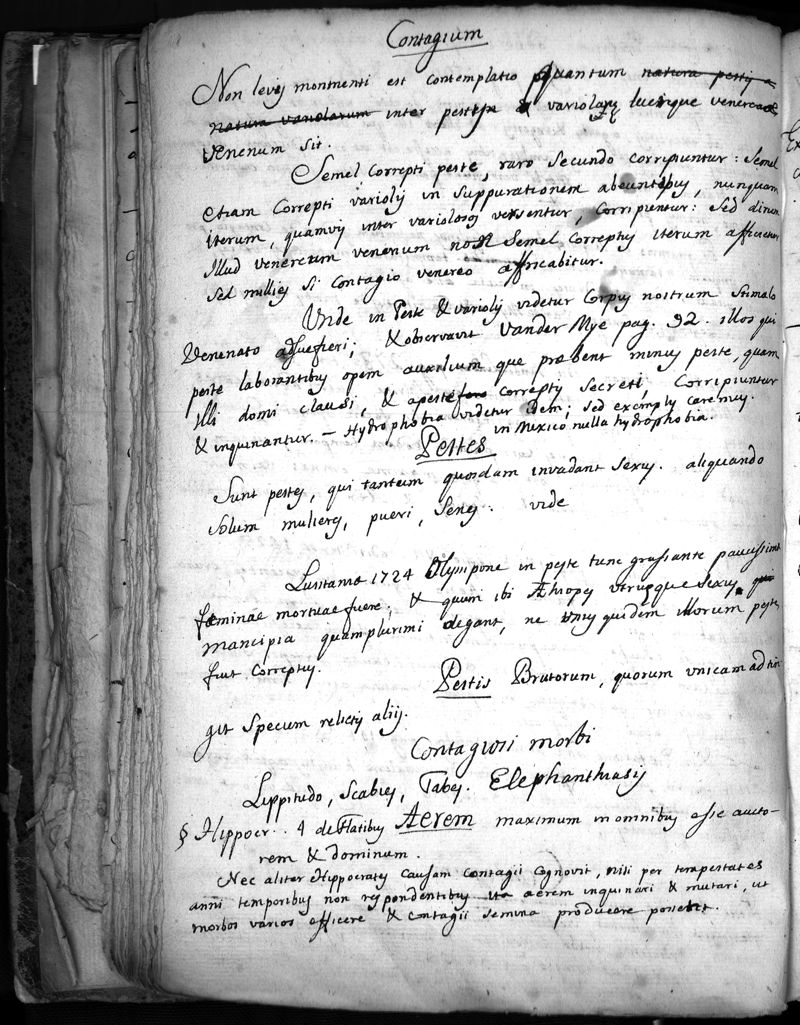 Contagium
Non levis momenti est contemplatio quantum natura pestis a
natura variolarum inter pestem & variolarum luemque veneream
venenum sit.
Semel Correpti peste, raro secundo corripiuntur: Semel
etiam Correpti variolis in suppurationem abeuntibus, nunquam
iterum, quamvis inter variolosos versentur, corripientur: Sed dirum
illud venereum venenum non Semel Correptus iterum afficietur
sed millies si contagio venereo affricabitur.
Unde in Peste & variolis videtur Corpus nostrum stimulo
Venenato assuefieri; & observavit Vander Mye pag. 92. illos qui
peste laborantibus opem auxilium que præbent minus peste, quam
illi domi clausi, & a peste correptis secreti, Corripiuntur
& inquinantur. — Hydrophobia videtur idem; sed exemplis caremus.
in Mexico nulla hydrophobia.
Pestes
Sunt pestes, qui tantum quosdam invadant sexus. aliquando
solum mulieres, pueri, senes. vide
Lusitania 1724 Olysipone in peste tunc grassante paucissimæ
fœminae mortuae fuere; & quum ibi Æthiopes utriusque sexus
mancipia quamplurimi degant, ne unus quidem illorum peste
fuit correptus.
Pestis Brutorum, quorum unicam adtin
git specum relictis aliis.
Contagiosi morbi
Lippitudo, Scabies, Tabes. Elephanthiasis
§ Hippocr. . 4 de Flatibus Aerem maximum in omnibus esse aucto-
rem & dominum.
Nec aliter Hippocrates causam contagii cognovit, nisi per tempestates
anni temporibus non respondentibus ita aerem inquinari & mutari, ut
morbos varios efficere & contagii semina producere posset.